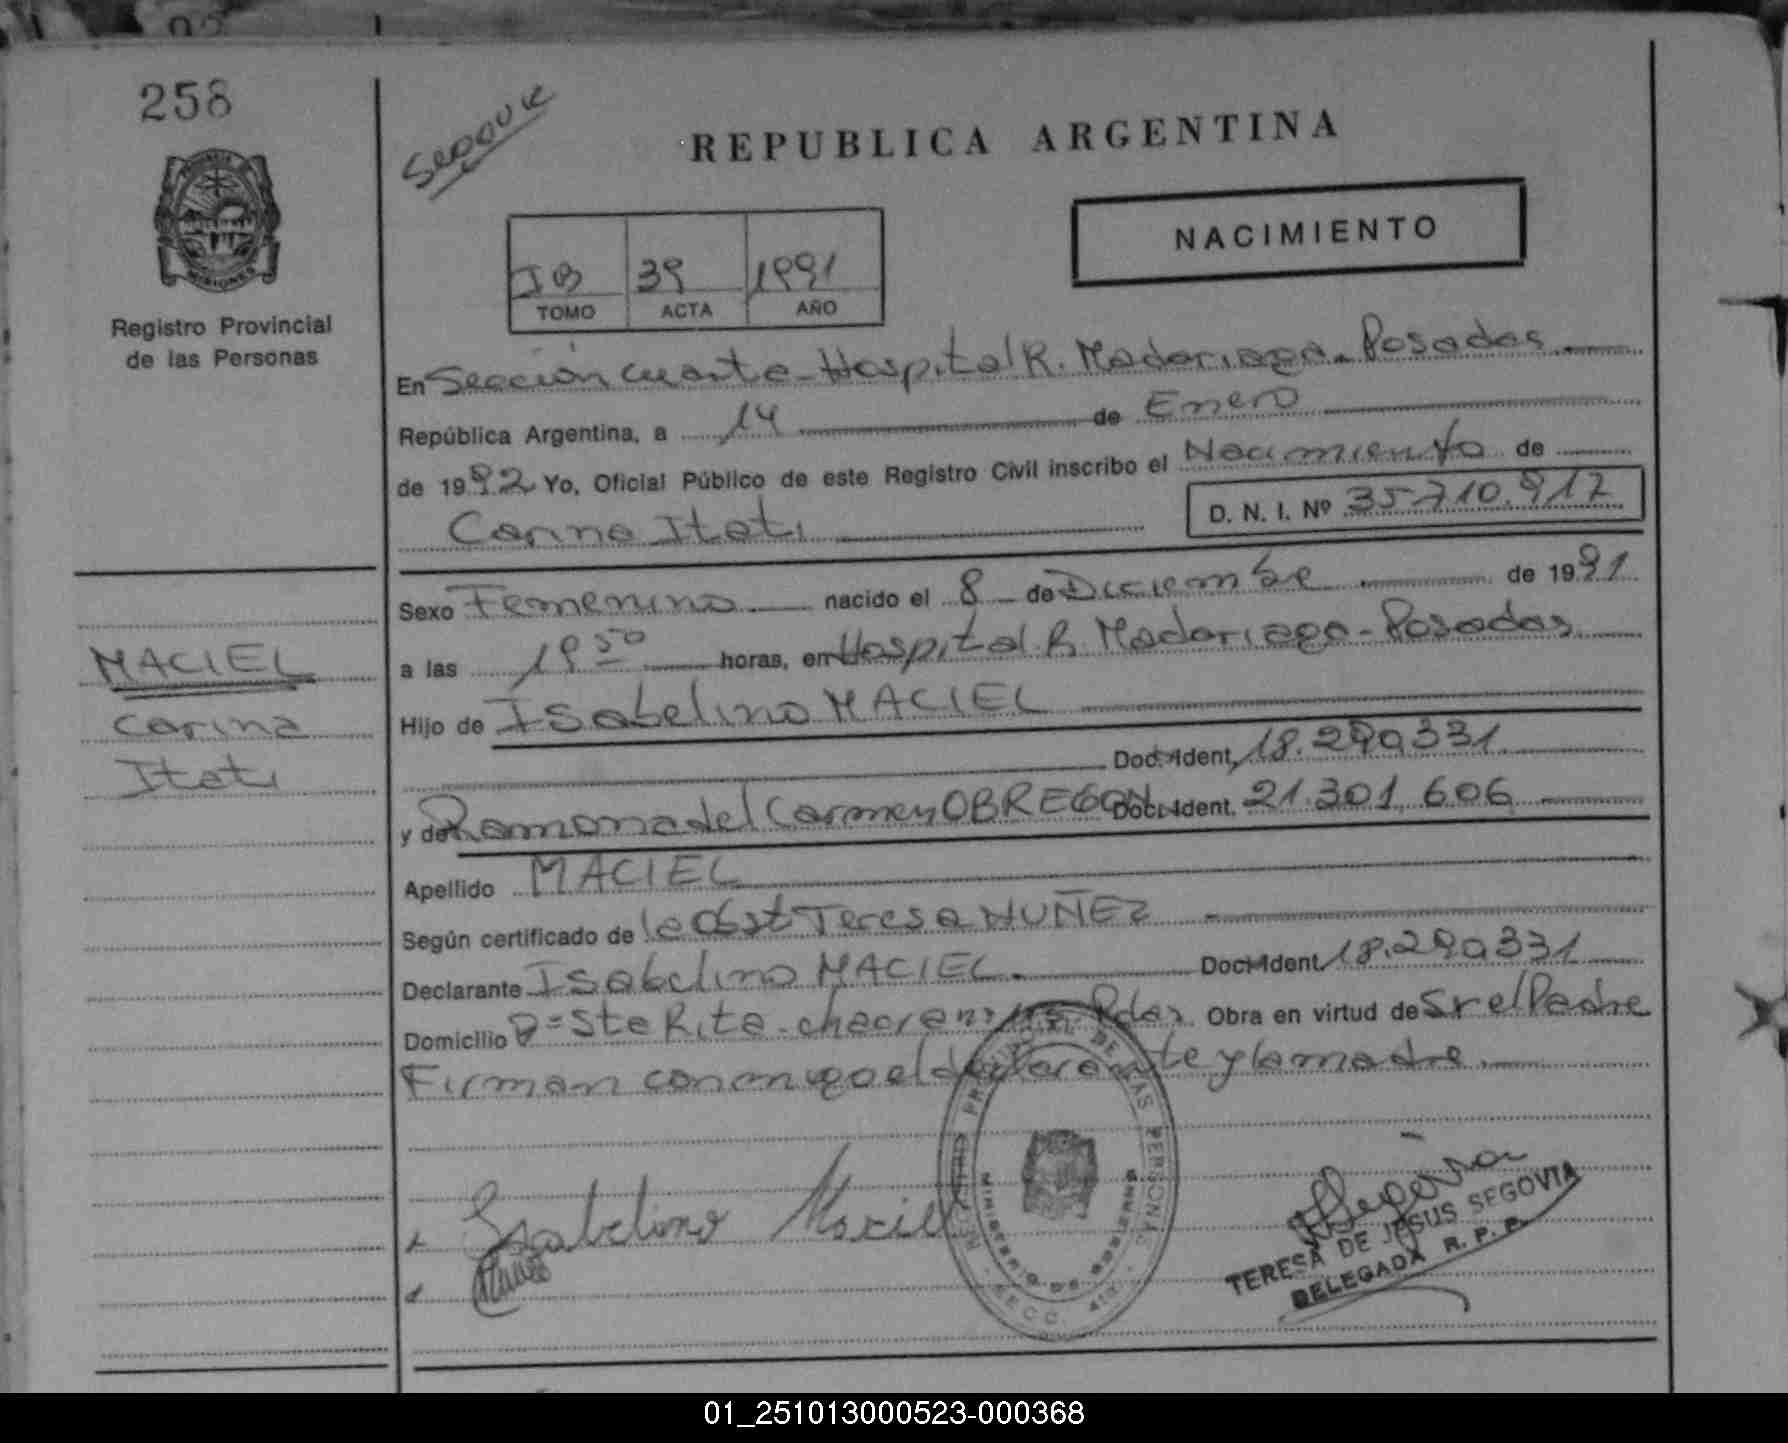 258
REPUBLICA ARGENTINA
NACIMIENTO
39 1991
TOMO ACTA AÑO
MISIONES
Registro Provincial
de las Personas
En Sección cuarta - Hospital R. Madariaga - Posadas
República Argentina, a 14 de Enero
de 1992 Yo, Oficial Público de este Registro Civil inscribo el Nacimiento de
Carina Itati D. N. I. Nº 35.710.917
Sexo Femenino nacido el 8 de Diciembre de 1991
a las 19 50 horas, en Hospital R. Madariaga - Posadas
MACIEL
Carina
Itati
Hijo de Isabelino MACIEL
Doc. Ident. 18.290.331
y de Ramona del Carmen OBREGON Doc. Ident. 21.301.606
Apellido MACIEL
Según certificado de la Obst Teresa NUÑEZ
Declarante Isabelino MACIEL Doc. Ident 18.290.331
Domicilio Bº Sta Rita - Pdas Obra en virtud de Sr el Padre
Firman conmigo el declarante y la madre
Isabelino Maciel
REGISTRO PROVINCIAL DE LAS PERSONAS
MINISTERIO DE GOBIERNO
SECC. 4ta.
Segovia
TERESA DE JESUS SEGOVIA
DELEGADA R. P. P.
01_251013000523-000368